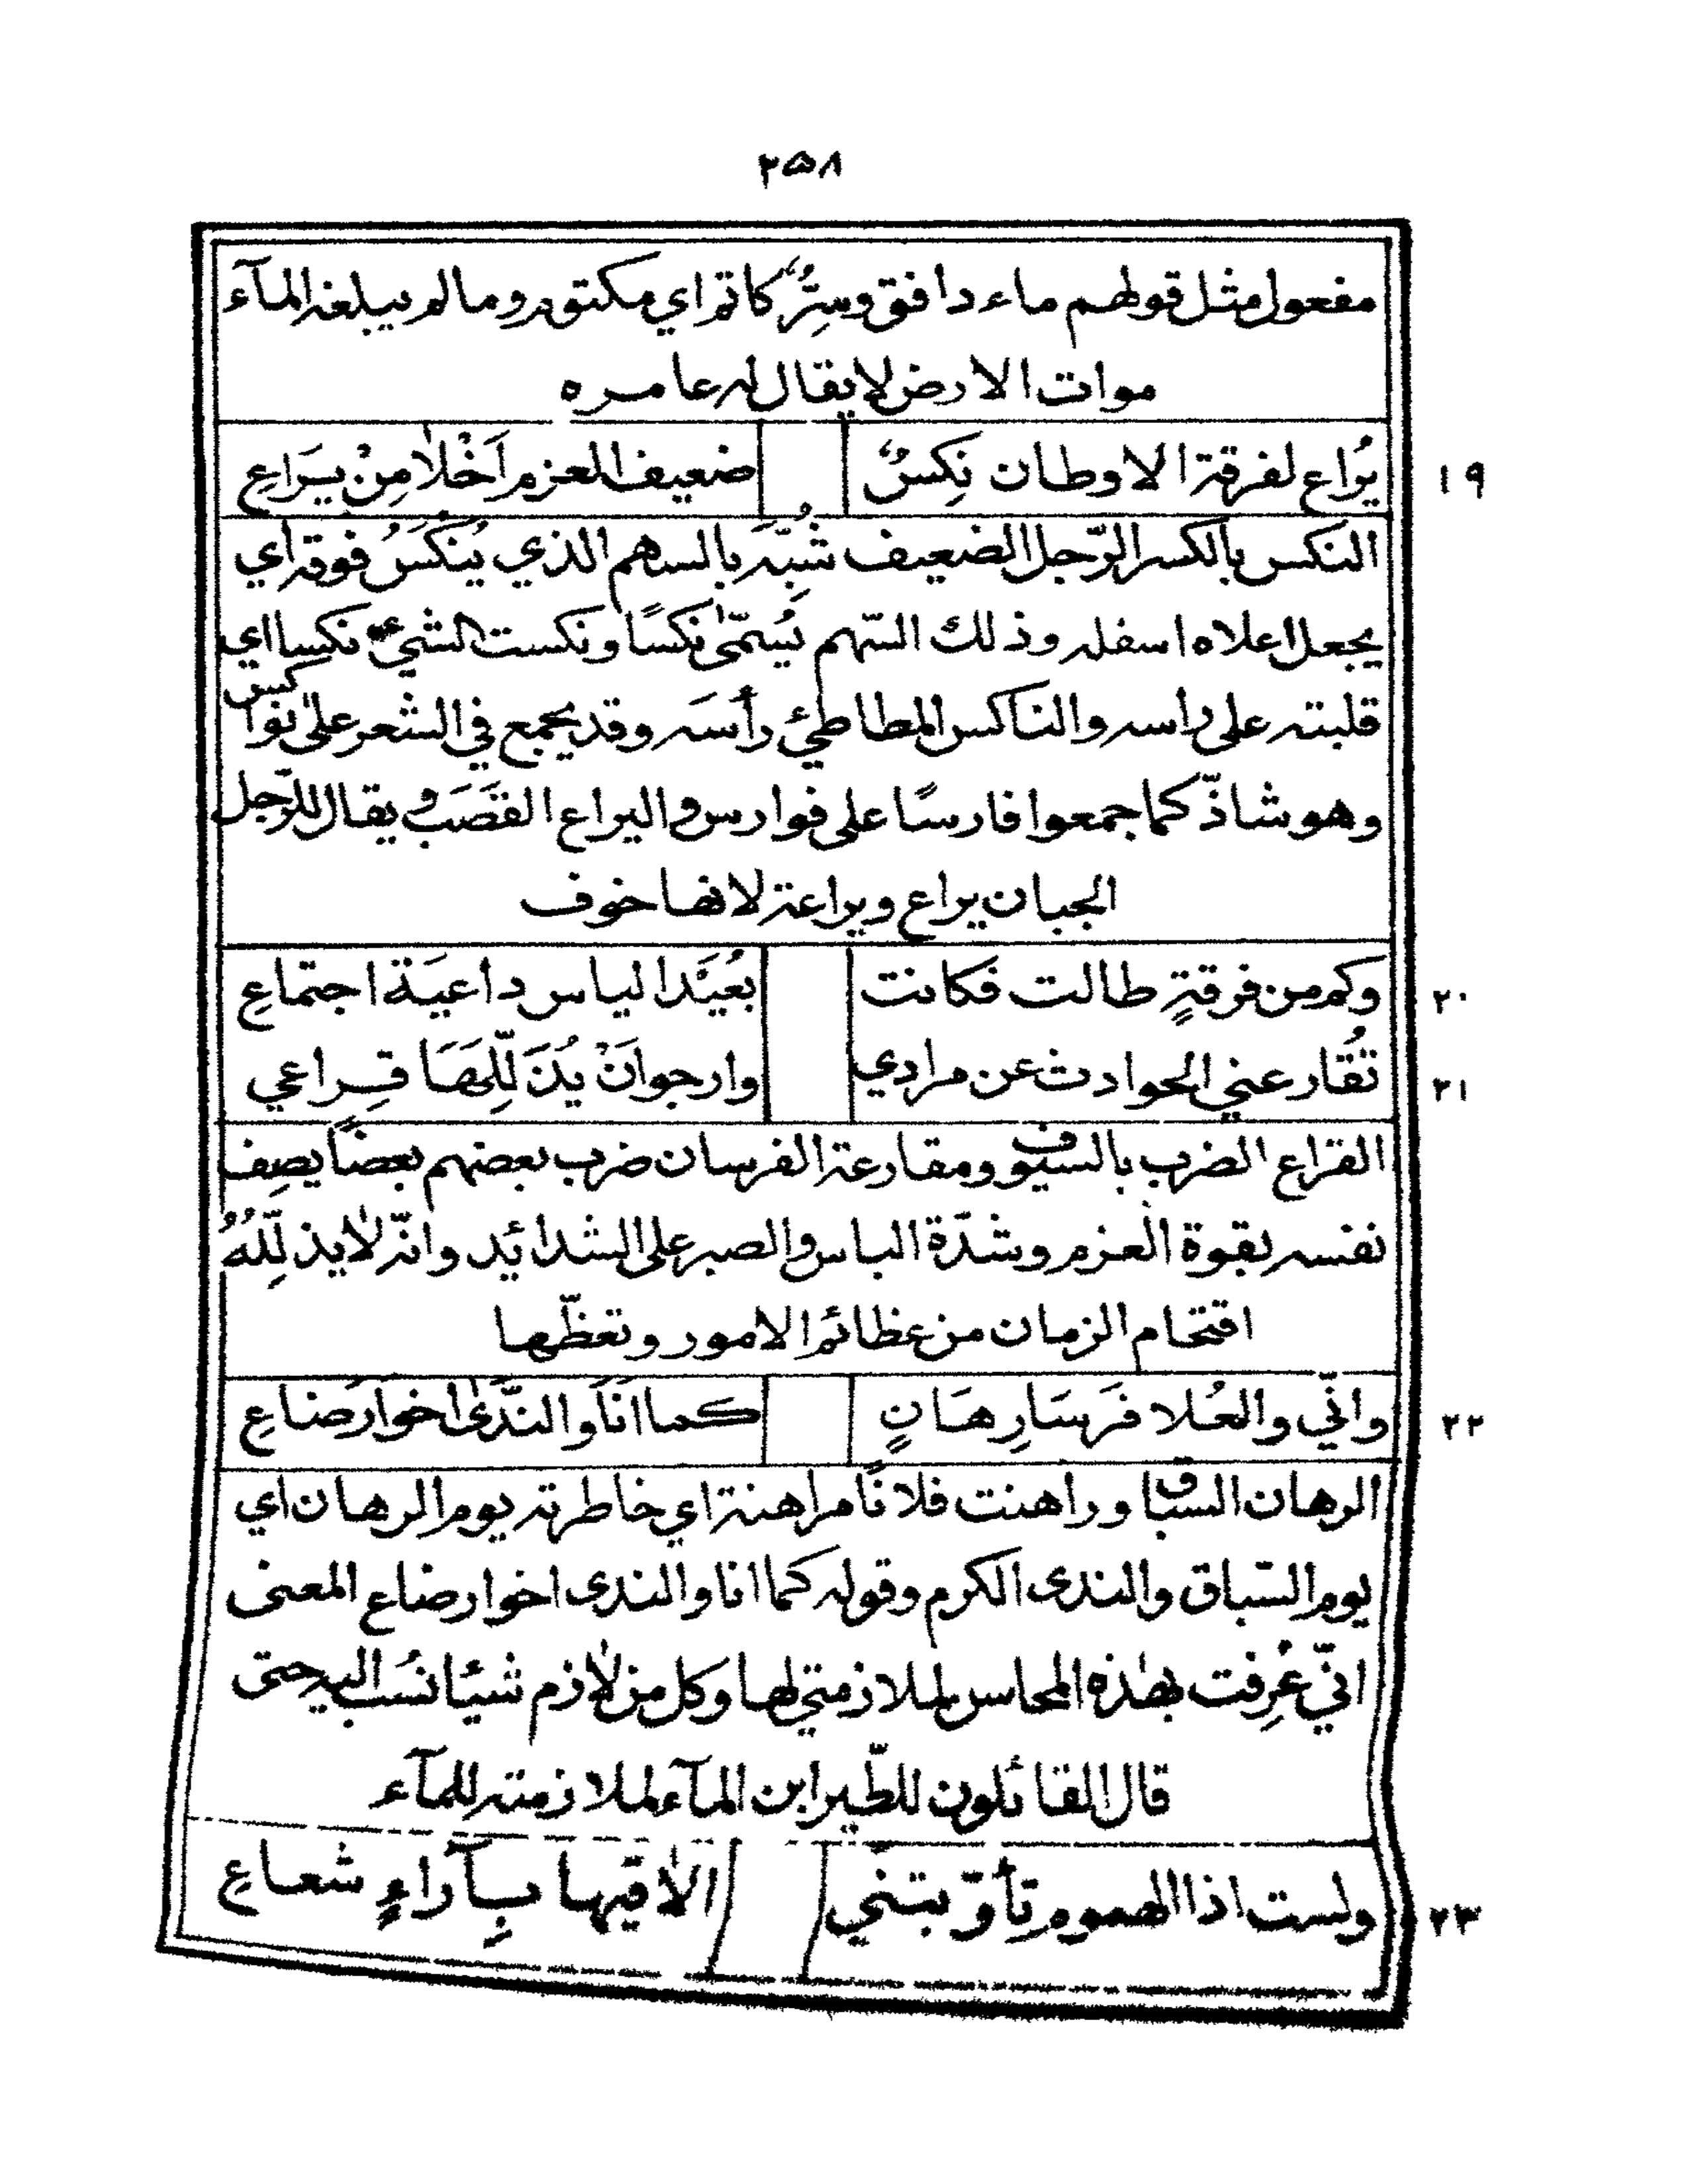 ٢٥٨
مفعول مثل قولهم ماء دافق وسِرٌّ كاتم اي مكتوم وما لم يبلغه المآء
موات الارض لا يقال له عامره
١٩ يُرَاع لفرقة الاوطان نِكسٌ ضعيف العزم اَخْلا مِنْ يَرَاعِ
النكس بالكسر الرّجل الضعيف شُبِّهَ بالسهم الذي يُنكَسُ فوقه اي
يجعل اعلاه اسفله وذلك السّهم يُسَمّى نكسًا ونكست الشيءَ نكسا اي
قلبته على راسه والناكس المطاطئ رأسَه وقد يجمع في الشعر على نواكس
وهو شاذّ كما جمعوا فارسًا على فوارس واليراع القَصَب ويقال للرّجل
الجبان يراع ويراعة لانها خوف
٢٠ وكم من فرقةٍ طالت فكانت بُعَيْدَ الياس داعيَة اجتماعِ
٢١ تُقَارعني الحوادث عن مرادي وارجو اَنْ يُذَلِّلَهَا قِراعي
القراع الضرب بالسيوف ومقارعة الفرسان ضرب بعضهم بعضًا يصِف
نفسه بقوة العزم وشدّة الباس والصبر على الشدائد وانّه لا يذلِّلُهُ
اقتحام الزمان من عظائم الامور وتعظّها
٢٢ وانّي والعُلا فَرَسَارِهَانٍ كما اَنَا والنَّدَى اخوارَضاعِ
الرهان السباق وراهنت فلانًا مراهنة اي خاطرته يوم الرهان اي
يوم السّباق والندى الكرم وقوله كما انا والندى اخوارضاع المعنى
انّي عُرِفت بهذه المحاس لملازمتي لها وكل من لازم شيئا نسُب اليه حتى
قال القائلون للطّير ابن المآء لملازمته للمآء
٢٣ ولست اذا الهموم تأوّبتني الاقيها بِآراءٍ شعاعِ